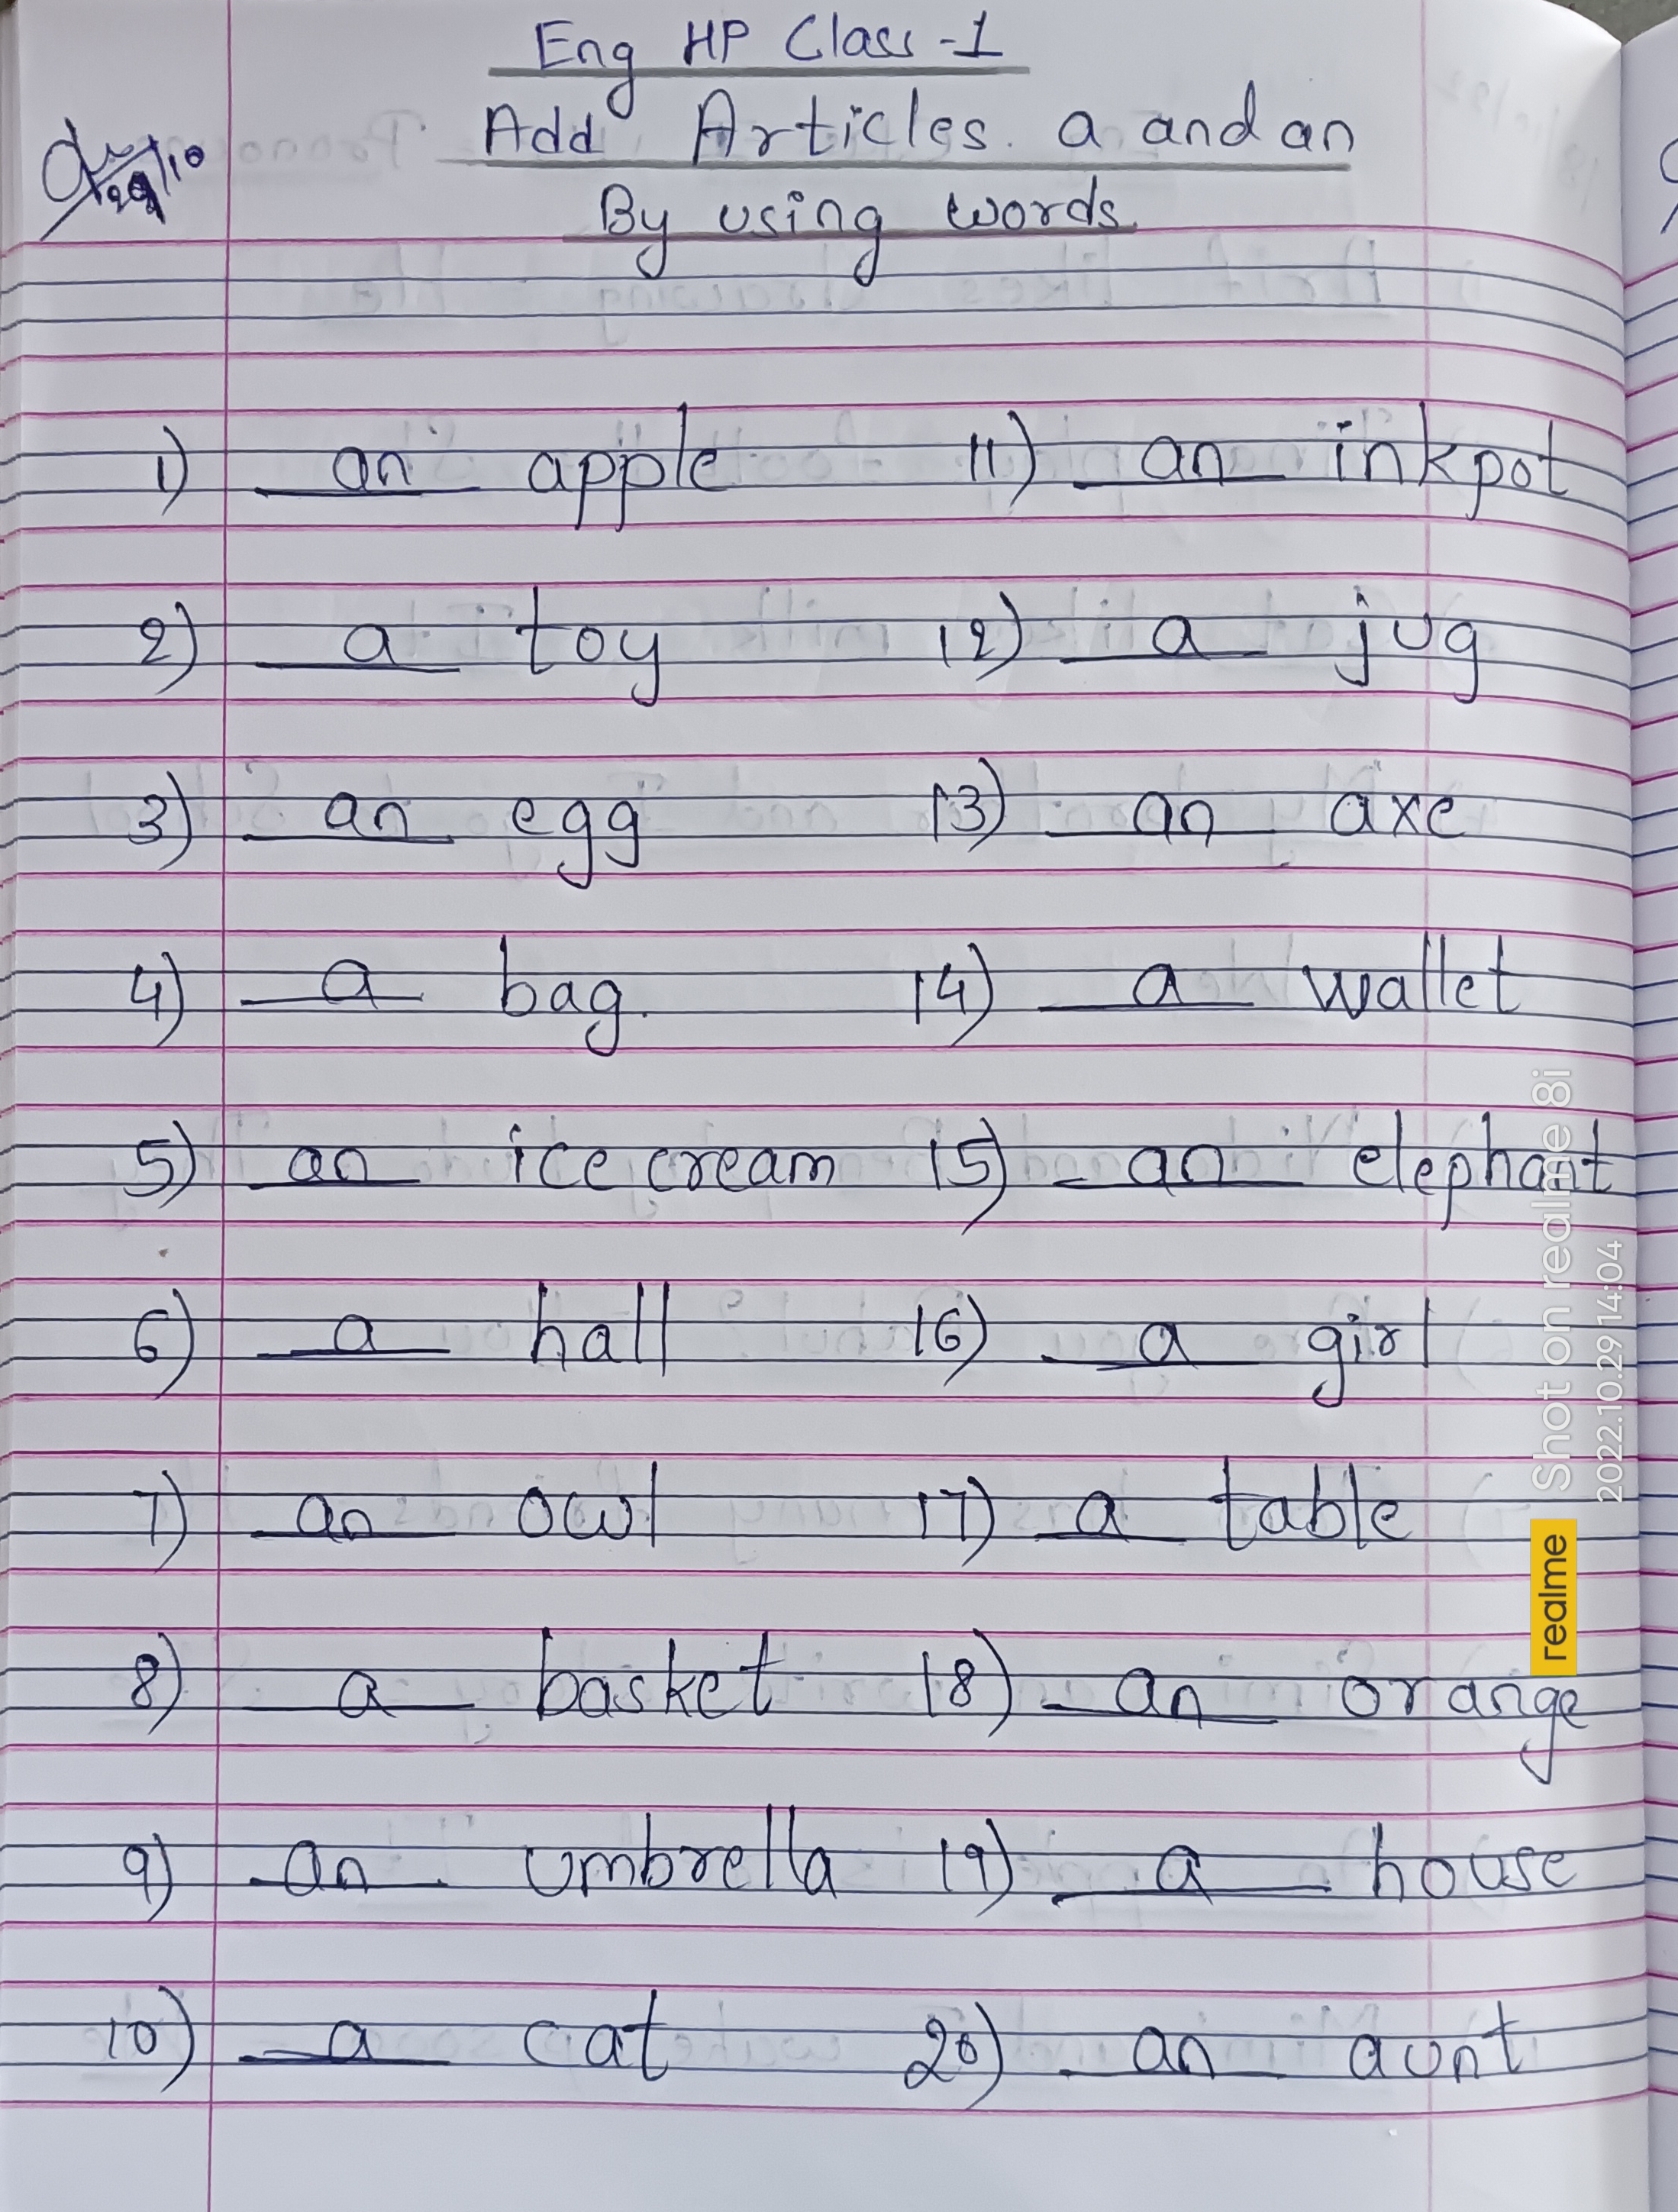 Eng HP Class-1
Add Articles. a and an
29/10
By using words.
1) an apple 11) an inkpot
2) a toy 12) a jug
3) an egg 13) an axe
4) a bag. 14) a wallet
5) an ice cream 15) an elephant
6) a hall 16) a girl
7) an owl 17) a table
8) a basket 18) an orange
9) an umbrella 19) a house
10) a cat 20) an aunt
Shot on realme 8i
2022.10.29 14:04
realme